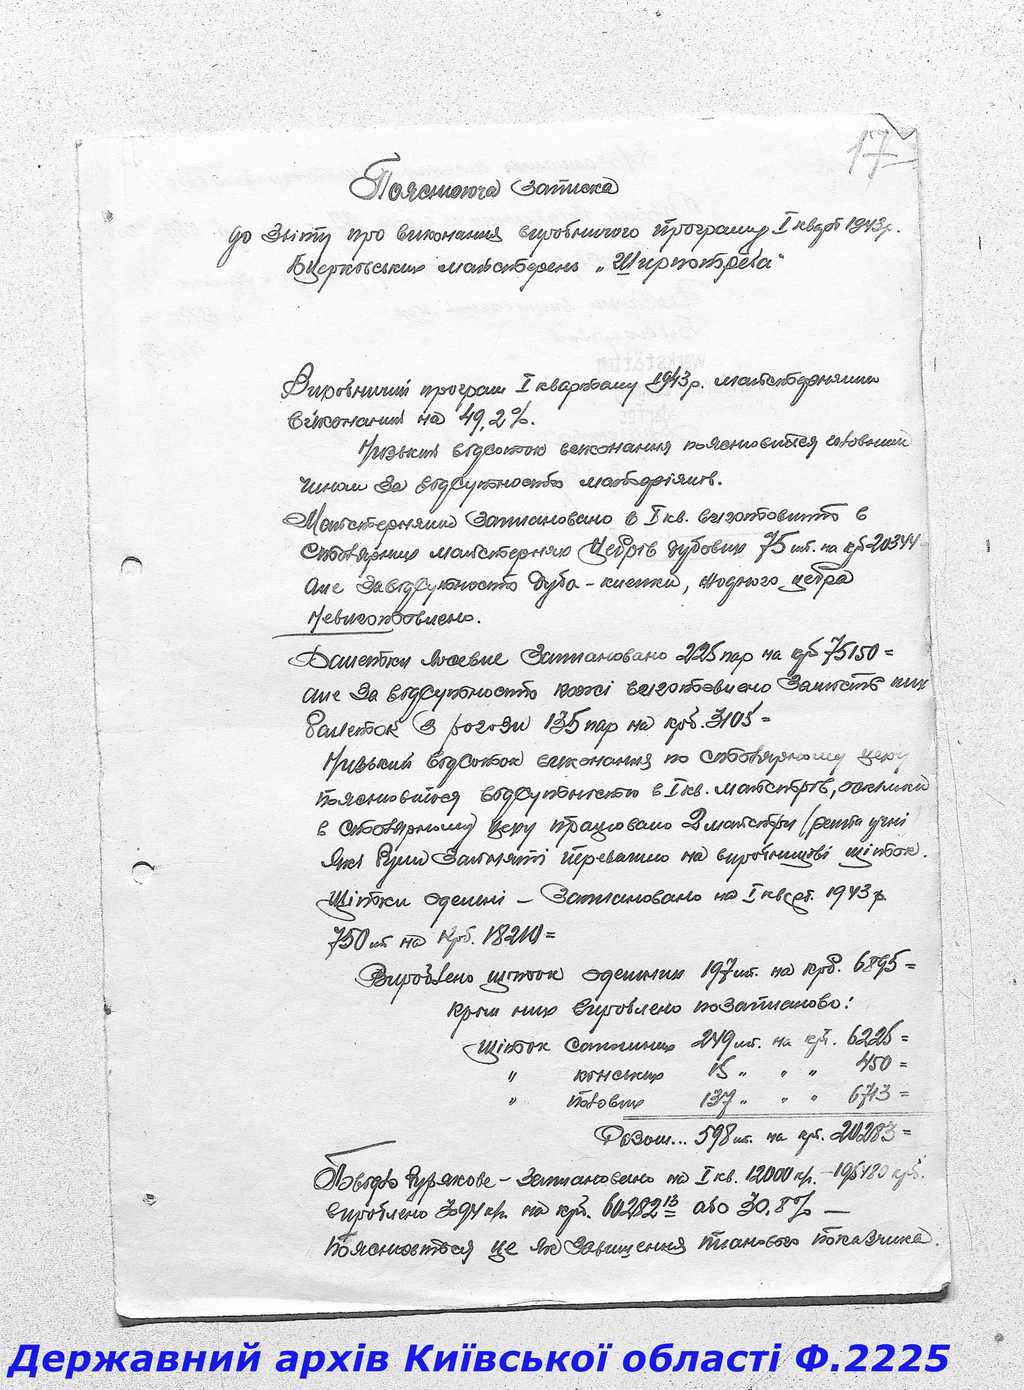 17
Пояснююча записка
до звіту про виконання виробничого програму І кварт 1943р.
Бцерковських майстерень „Ширпотреба"
Виробничий програм І кварталу 1943р. майстернями
виконаний на 49,2%.
Низький відсоток виконання пояснюється головним
чином за відсутностю матеріялів.
Майстернями заплановано в І кв. виготовити в
столярних майстернях цебрів дубових 75 шт. на крб 20344
але завідсутностю дуба-клепки, жодного цебра
невиготовлено.
Балетки лозеві заплановано 225 пар на крб 75150=
але за відсутностю кожі виготовлено замість них
балеток з рогози 135 пар на крб. 3105=
Низький відсоток виконання по столярному цеху
пояснюється відсутністю в І кв. майстрів, оскільки
в столярному цеху працювало 2 майстри (решта учні
які були заняті переважно на виробництві щіток.
Щітки одежні – заплановано на І кварт. 1943 р.
750 шт на крб. 18210=
Вироблено щіток одежних 197 шт. на крб. 6895=
крім них вироблено позапланово:
щіток сапожних 249 шт. на крб. 6225=
„ конських 15 „ „ „ 450=
„ половых 137 „ „ „ 6713=
Разом... 598 шт. на крб. 20283=
Повидло бурякове – заплановано на І кв. 12000 кг. – 195480 крб.
вироблено 3094 кг. на крб. 60282 13 або 30,8% —
пояснюється це як завищення планового показчика.
Державний архів Київської області Ф.2225